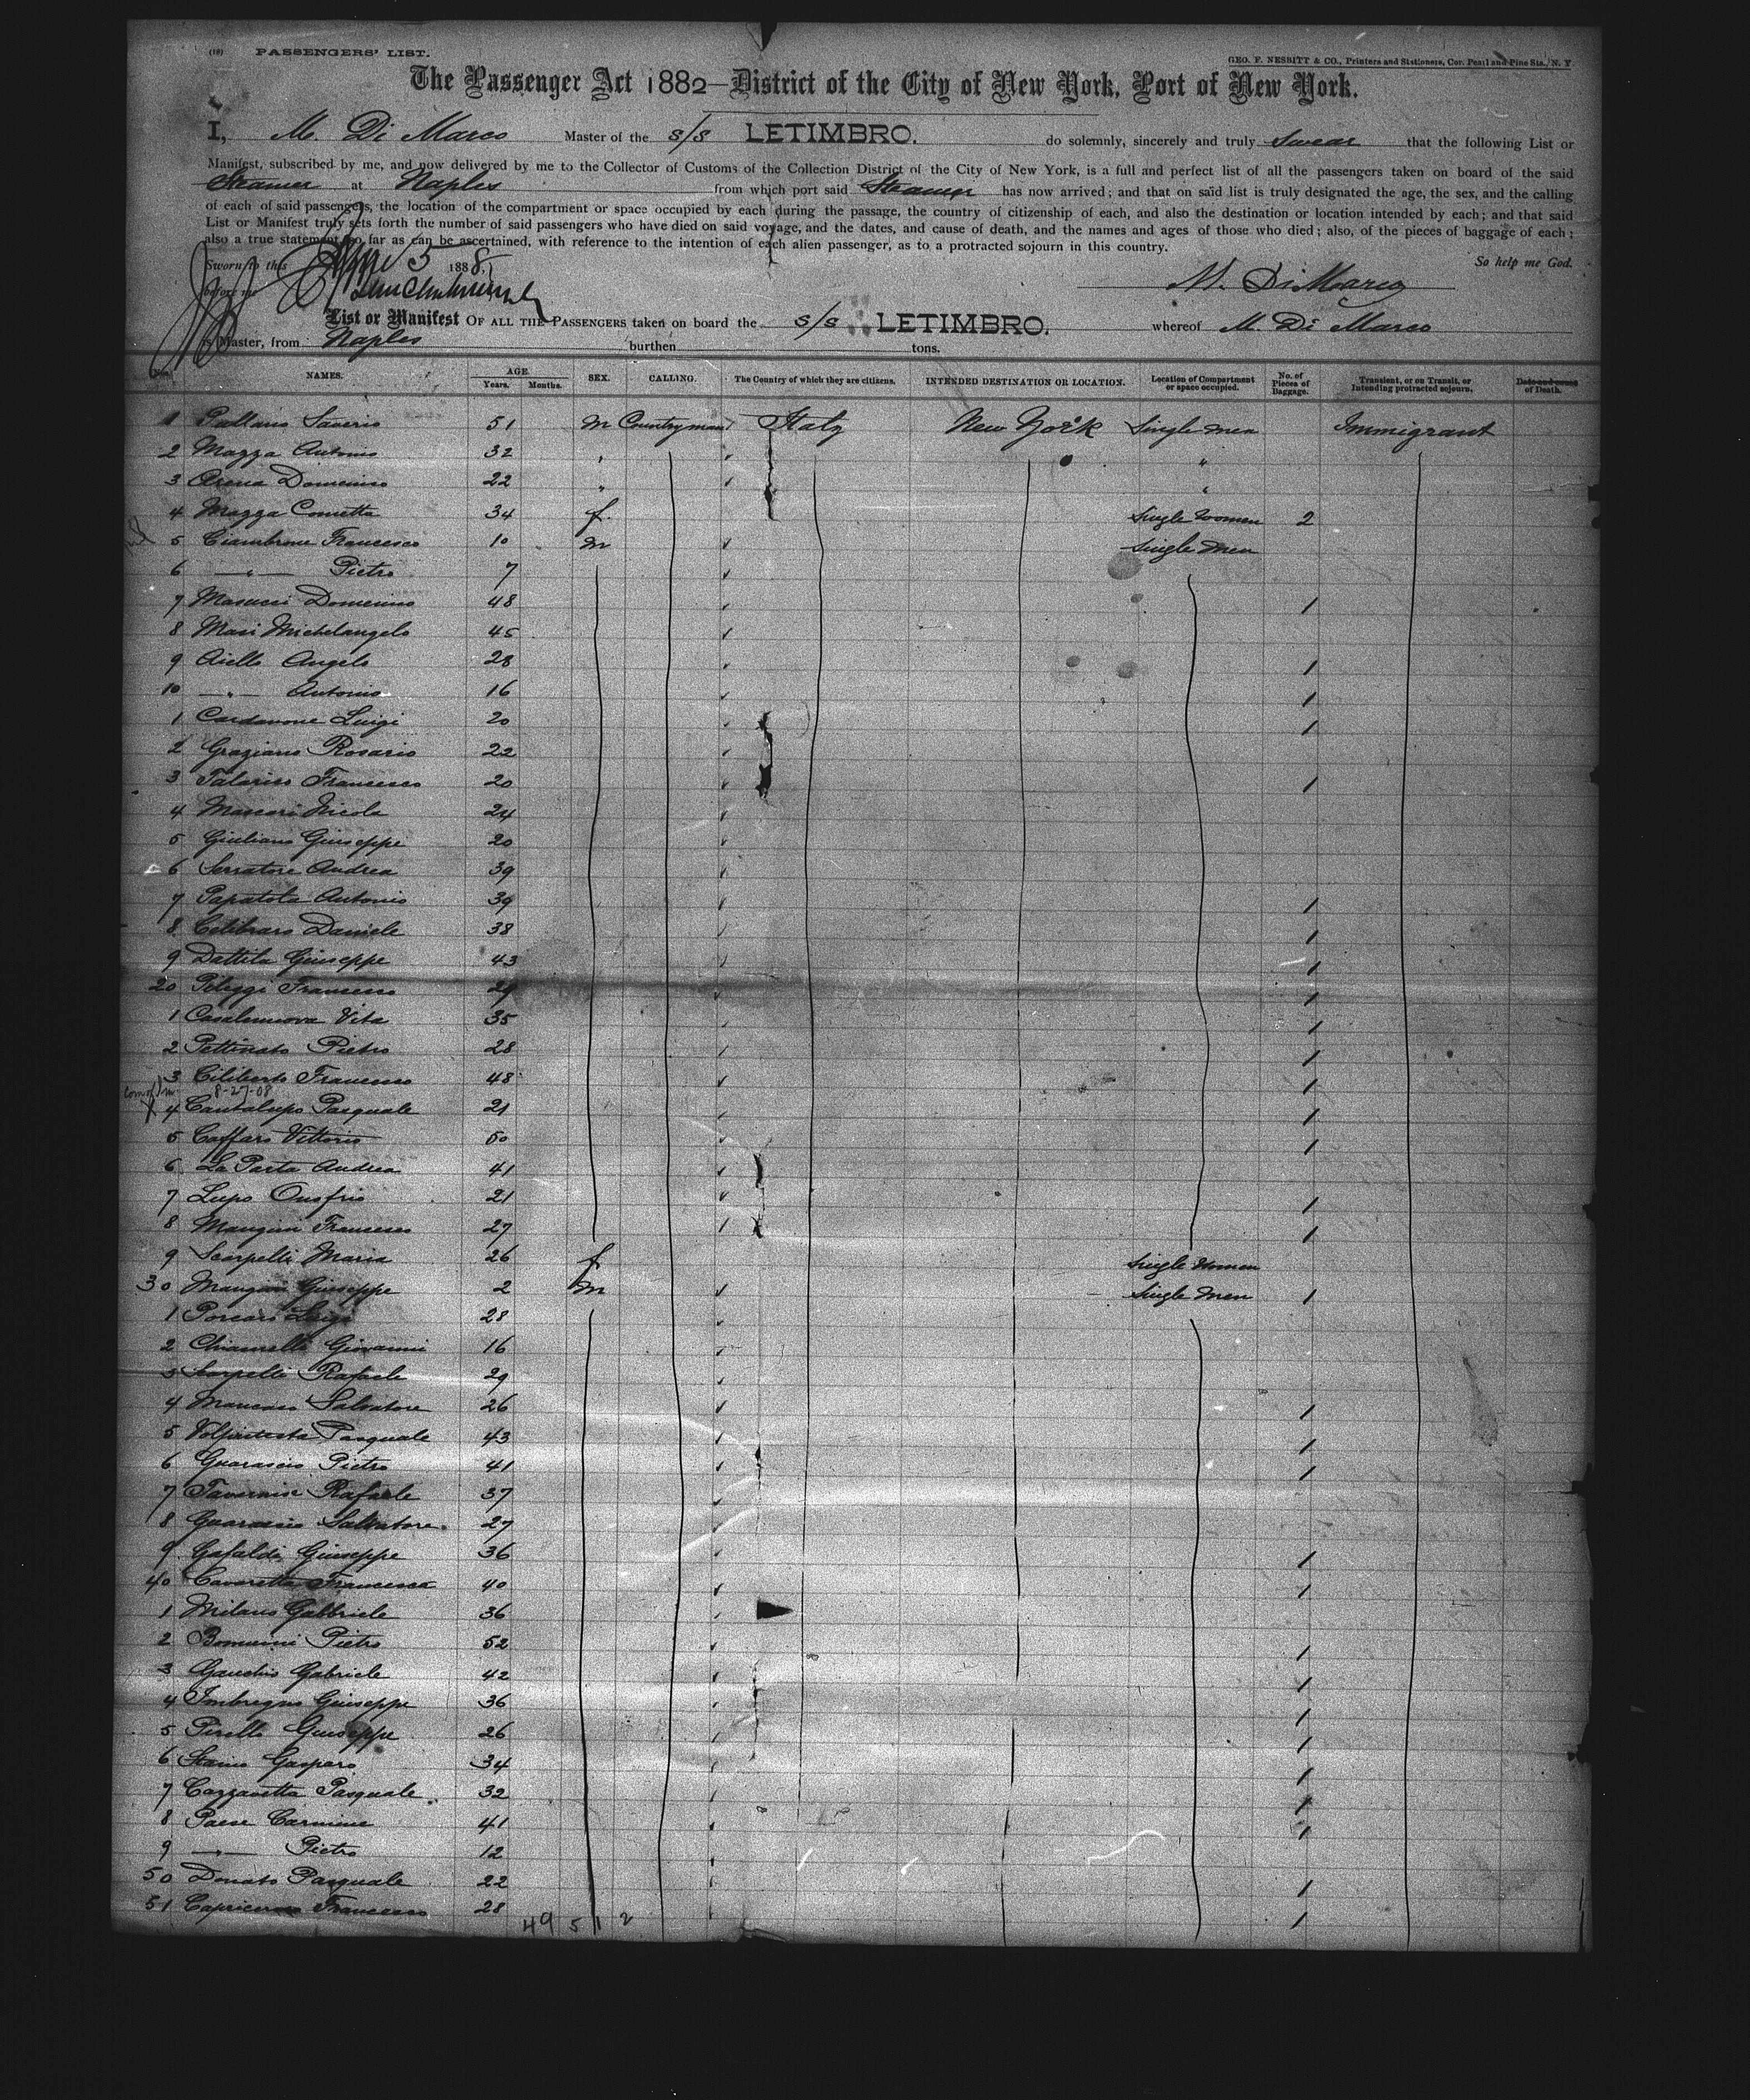 (18) PASSENGERS' LIST.
GEO. F. NESBITT & CO., Printers and Stationers, Cor. Pearl and Pine Sts., N. Y.
The Passenger Act 1882—District of the City of New York, Port of New York.
I, M. Di Marco Master of the s/s LETIMBRO. do solemnly, sincerely and truly swear that the following List or
Manifest, subscribed by me, and now delivered by me to the Collector of Customs of the Collection District of the City of New York, is a full and perfect list of all the passengers taken on board of the said
Steamer at Naples from which port said Steamer has now arrived; and that on said list is truly designated the age, the sex, and the calling
of each of said passengers, the location of the compartment or space occupied by each during the passage, the country of citizenship of each, and also the destination or location intended by each; and that said
List or Manifest truly sets forth the number of said passengers who have died on said voyage, and the dates, and cause of death, and the names and ages of those who died; also, of the pieces of baggage of each;
also a true statement so far as can be ascertained, with reference to the intention of each alien passenger, as to a protracted sojourn in this country.
Sworn to this 5 1888, So help me God.
before me M. Di Marco
List or Manifest OF ALL THE PASSENGERS taken on board the s/s LETIMBRO. whereof M. Di Marco
is Master, from Naples burthen tons.
NAMES. AGE. Years. Months. SEX. CALLING. The Country of which they are citizens. INTENDED DESTINATION OR LOCATION. Location of Compartment or space occupied. No. of Pieces of Baggage. Transient, or on Transit, or Intending protracted sojourn. Date and cause of Death.
1 Pallano Saverio 51 m Countryman Italy New York Single men Immigrant
2 Mazza Antonio 32 " "
3 Arena Domenico 22 " "
4 Mazza Concetta 34 f. Single Women 2
5 Ciambrone Francesco 10 m Single Men
6 —"— Pietro 7
7 Masucci Domenico 48 1
8 Masi Michelangelo 45
9 Aiello Angelo 28 1
10 —"— Antonio 16 1
1 Cardamone Luigi 20 1
2 Graziano Rosario 22
3 Talarico Francesco 20 1
4 Mascari Nicola 24
5 Giuliano Giuseppe 20
6 Serratore Andrea 39
7 Papatola Antonio 39 1
8 Cilibraro Daniele 38 1
9 Dattilo Giuseppe 43 1
20 Pileggi Francesco 1
1 Casalinuova Vito 35 1
2 Pettinato Pietro 28 1
3 Ciliberto Francesco 48 1
8-27-08
4 Cantalupo Pasquale 21 1
5 Caffaro Vittorio 50 1
6 La Porta Andrea 41
7 Lupo Onofrio 21 1
8 Mangini Francesco 27 1
9 Scarpelli Maria 26 f Single Women
30 Mangini Giuseppe 2 m Single Men 1
1 Porcaro Luigi 28
2 Chiarelli Giovanni 16
3 Scarpelli Rafaele 29
4 Mancuso Salvatore 26 1
5 Volpintesta Pasquale 43 1
6 Guarascio Pietro 41 1
7 Tavernise Rafaele 37
8 Guarascio Salvatore 27
9 Gafaldi Giuseppe 36 1
40 Cavaretta Francesca 40 1
1 Milano Gabbriele 36
2 Pietro 52 1
3 Gabriele 42 1
4 Giuseppe 36 1
5 Pirello Giuseppe 26 1
6 Gasparo 34 1
7 Cozzavetta Pasquale 32 1
8 Paese Carmine 41 1
9 —"— Pietro 12
50 Donato Pasquale 22 1
51 Francesco 28 1
49 5 1 2